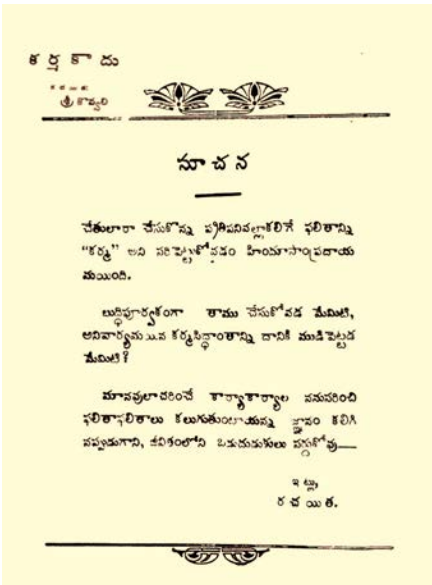 కర్మ కాదు
రచయిత
శ్రీ కొవ్వలి
సూచన
చేతులారా చేసుకొన్న ప్రతిపనివల్లాకలిగే ఫలితాన్ని
“కర్మ” అని సరిపెట్టుకోవడం హిందూసాంప్రదాయ
మయింది.
బుద్ధిపూర్వకంగా తాము చేసుకోవడ మేమిటి,
అనివార్యమయిన కర్మసిద్ధాంతాన్ని దానికి ముడిపెట్టడ
మేమిటి?
మానవులాచరించే కార్యాకార్యాల ననుసరించి
ఫలితాఫలితాలు కలుగుతుంటాయన్న జ్ఞానం కలిగి
నప్పుడుగాని, జీవితంలోని ఒడుదుడుకులు వగ్గుకోవు—
ఇట్లు,
రచయిత.